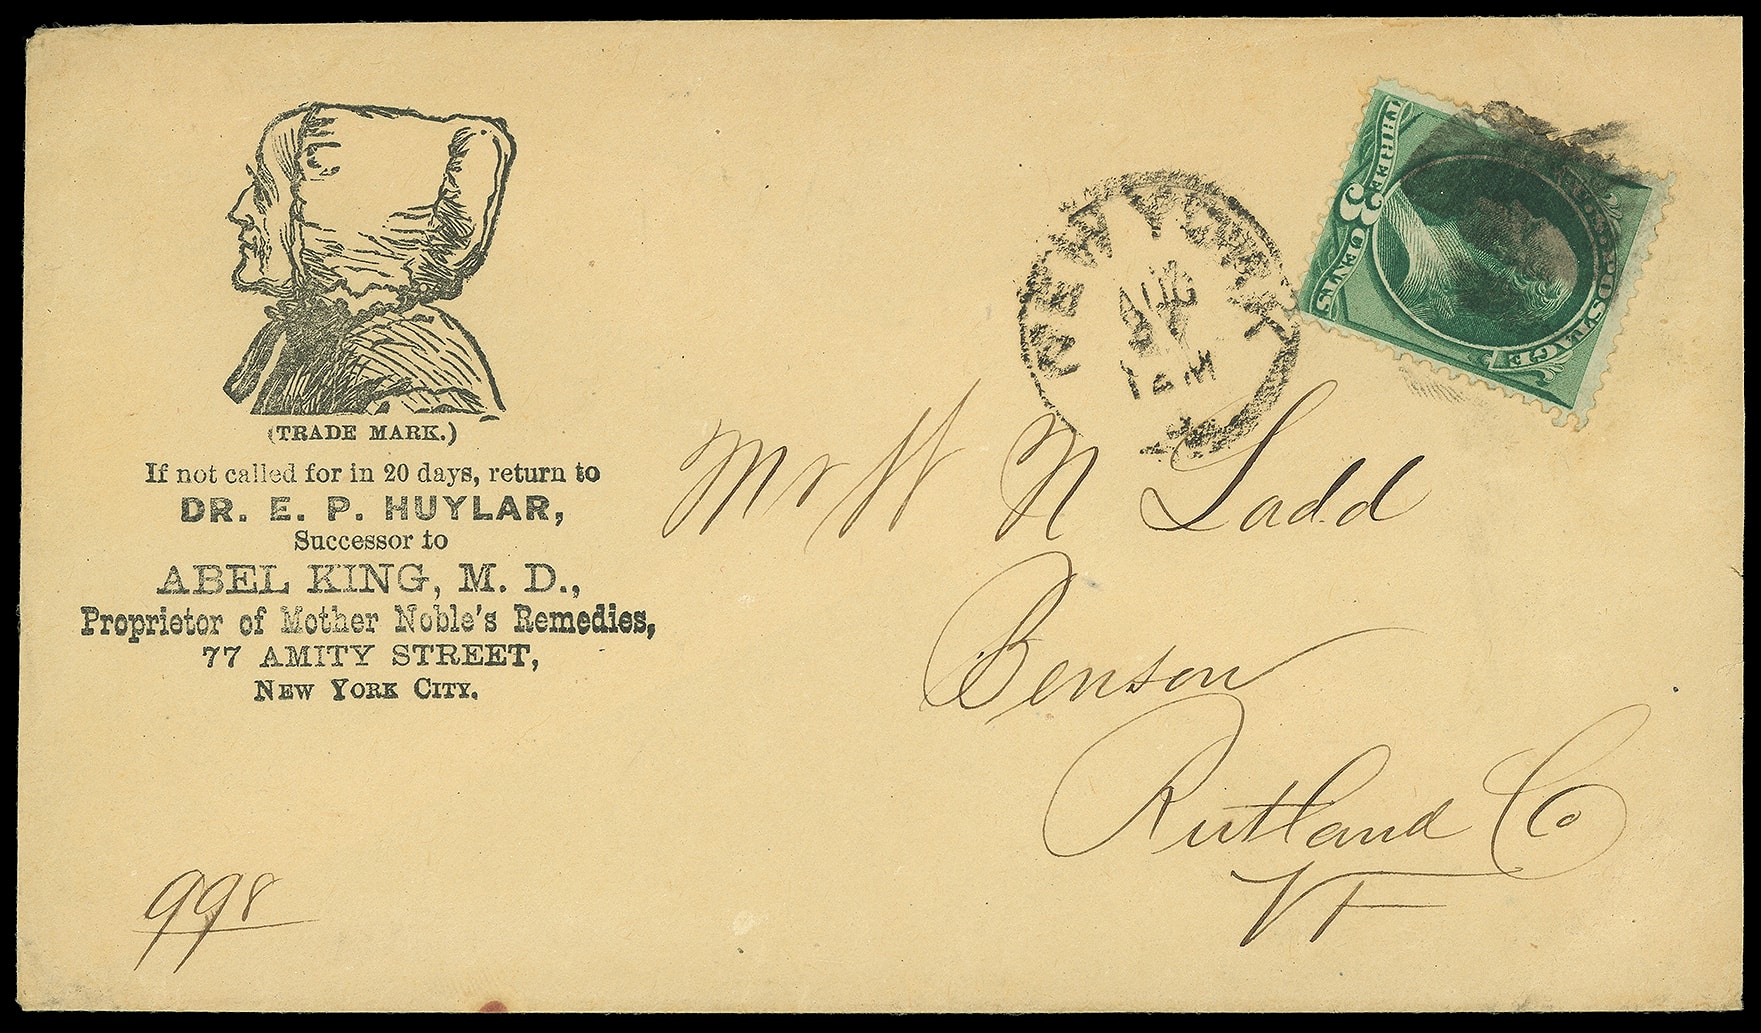 (TRADE MARK.)
If not called for in 20 days, return to
DR. E. P. HUYLAR,
Successor to
ABEL KING, M. D.,
Proprietor of Mother Noble's Remedies,
77 AMITY STREET,
NEW YORK CITY.
998
NEW YORK
AUG
M
THREE 3 CENTS
POSTAGE
Mr
N Ladd
Benson
Rutland Co
Vt